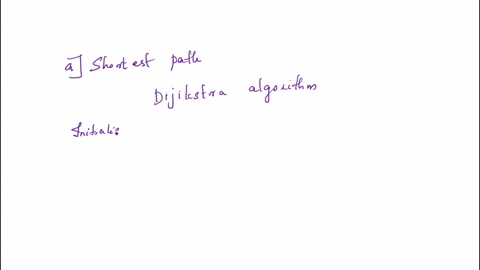 a] Shortest path
Dijikstra algorithm
Initialis